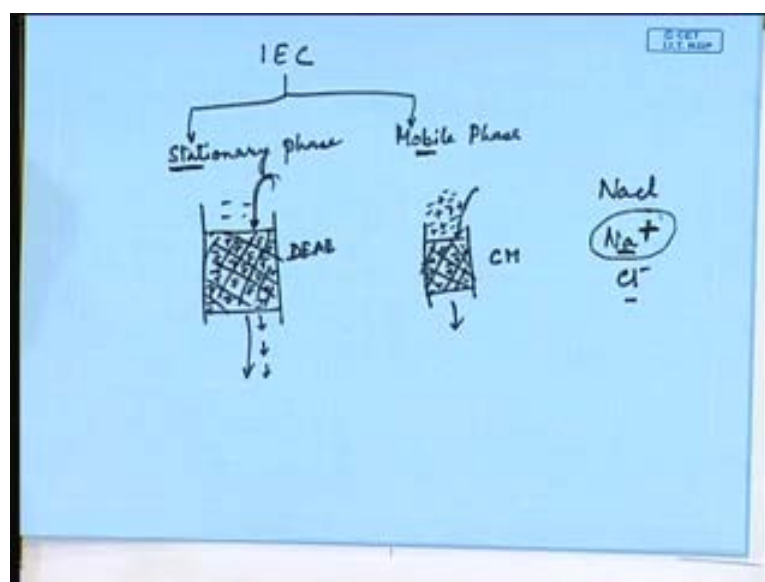 © CET
I.I.T. KGP
IEC
Stationary phase
Mobile Phase
DEAE
CM
Nacl
Na+
Cl-